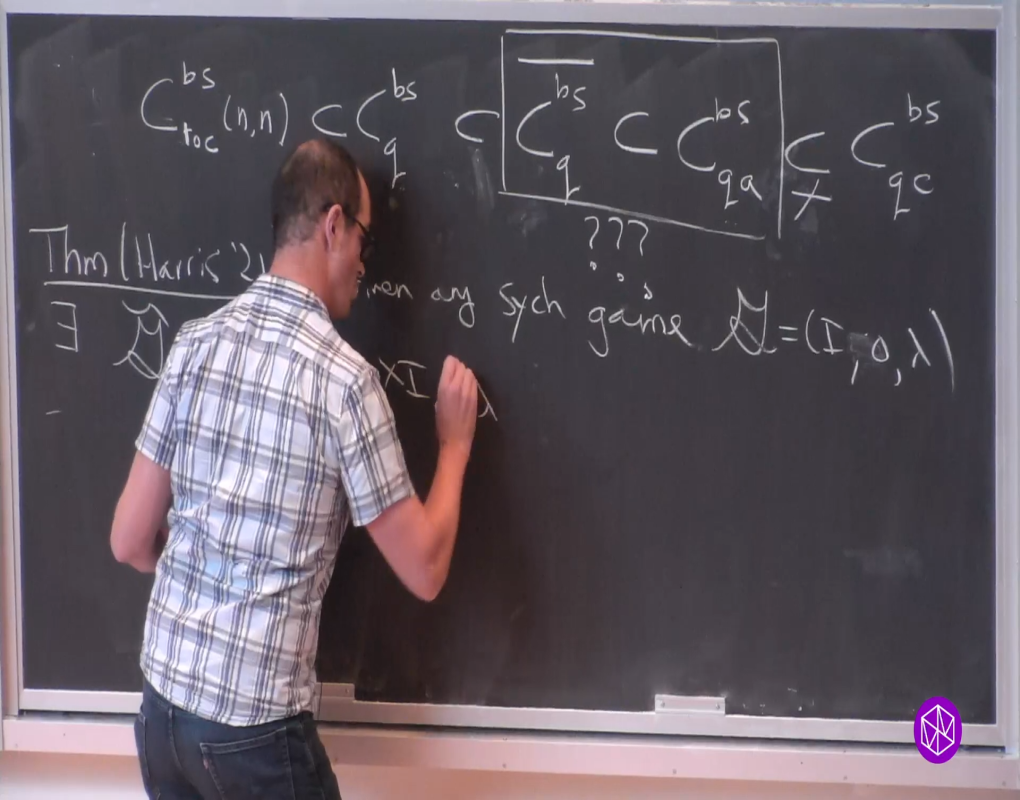 C^{bs}_{loc}(n,n) ⊂ C^{bs}_{q} ⊂ \overline{C^{bs}_{q}} ⊂ C^{bs}_{qa} ⊊ C^{bs}_{qc}
???
Thm (Harris '2 any sych game 𝒢 = (I, O, λ)
∃ 𝒢 ×I λ